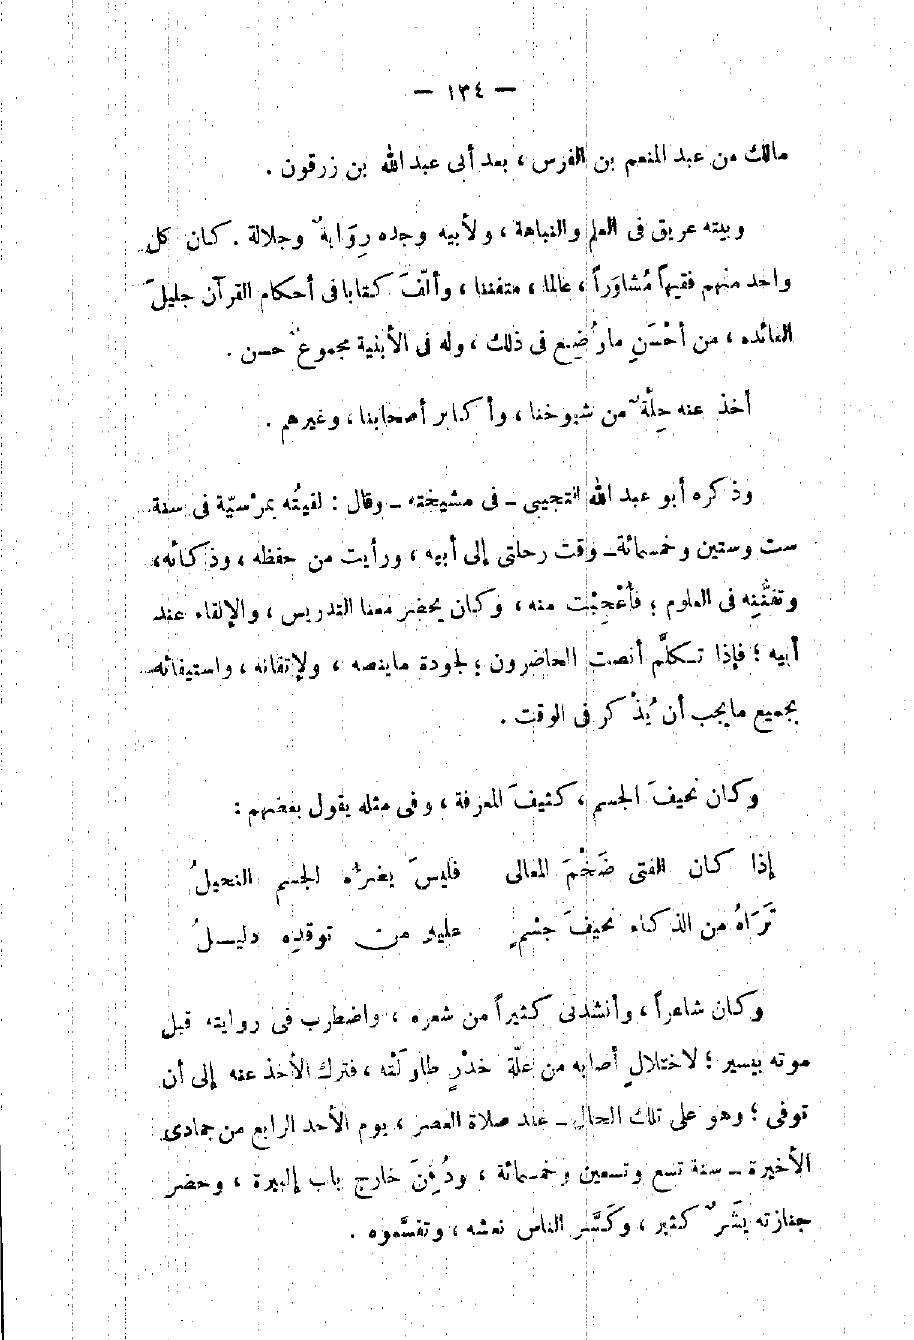 — ١٣٤ —
مالك من عبد المنعم بن الفرس ، بعد أبى عبد الله بن زرقون .
وبيته عريق فى العلم والنباهة ، ولأبيه وجده رِوَايةٌ وجلالة . كان كل
واحد منهم فقيهاً مُشاوَراً ، عالما ، متفننا ، وألّفَ كتابا فى أحكام القرآن جليلَ
الفائده ، من أحْسَنِ ما وُضِع فى ذلك ، وله فى الأبنية مجموعٌ حسن .
أخذ عنه جِلّةٌ من شيوخنا ، وأكابر أصحابنا ، وغيرهم .
وذكره أبو عبد الله التجيبى ــ فى مشيخته ــ وقال : لقيتُه بمرْسيّة فى سنة
ست وستين وخمسمائة ــ وقت رحلتى إلى أبيه ، ورأيت من حفظه ، وذكائه ،
وتفنُّنِه فى العلوم ؛ فأُعْجِبْت منه ، وكان يحضر معنا التدريس ، والإلقاء عند
أبيه ؛ فإذا تكلَّم أنصت الحاضرون ؛ لجودة ماينصه ، ولإتقانه ، واستيفائه
بجميع مايجب أن يُذْكر فى الوقت .
وكان نحيفَ الجسم ، كثيفَ المعرفة ، وفى مثله يقول بعضهم :
إذا كان الفتى ضَخْمَ المعالى فليسَ يضرُّه الجسم النحيلُ
تَرَاهُ من الذكاء نحيفَ جسْمٍ عليه من توقدِه دليلُ
وكان شاعراً ، وأنشدنى كثيراً من شعره ، واضطرب فى روايته قبل
موته بيسير ؛ لاختلالٍ أصابه من علّة خدْرٍ طاولَتْه ، فترك الأخذ عنه إلى أن
توفى ؛ وهو على تلك الحال ــ عند صلاة العصر ، يوم الأحد الرابع من جمادى
الأخيرة ــ سنة تسع وتسعين وخمسمائة ، ودُفِنَ خارج باب إلبيرة ، وحضر
جنازته بَشَرٌ كثير ، وكَسَّر الناس نعشه ، وتقسَّموه .